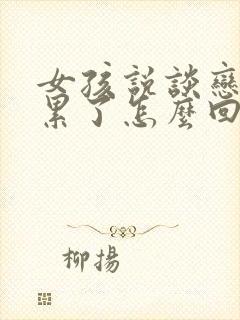 女孩说談戀
累了怎麼回
柳揚